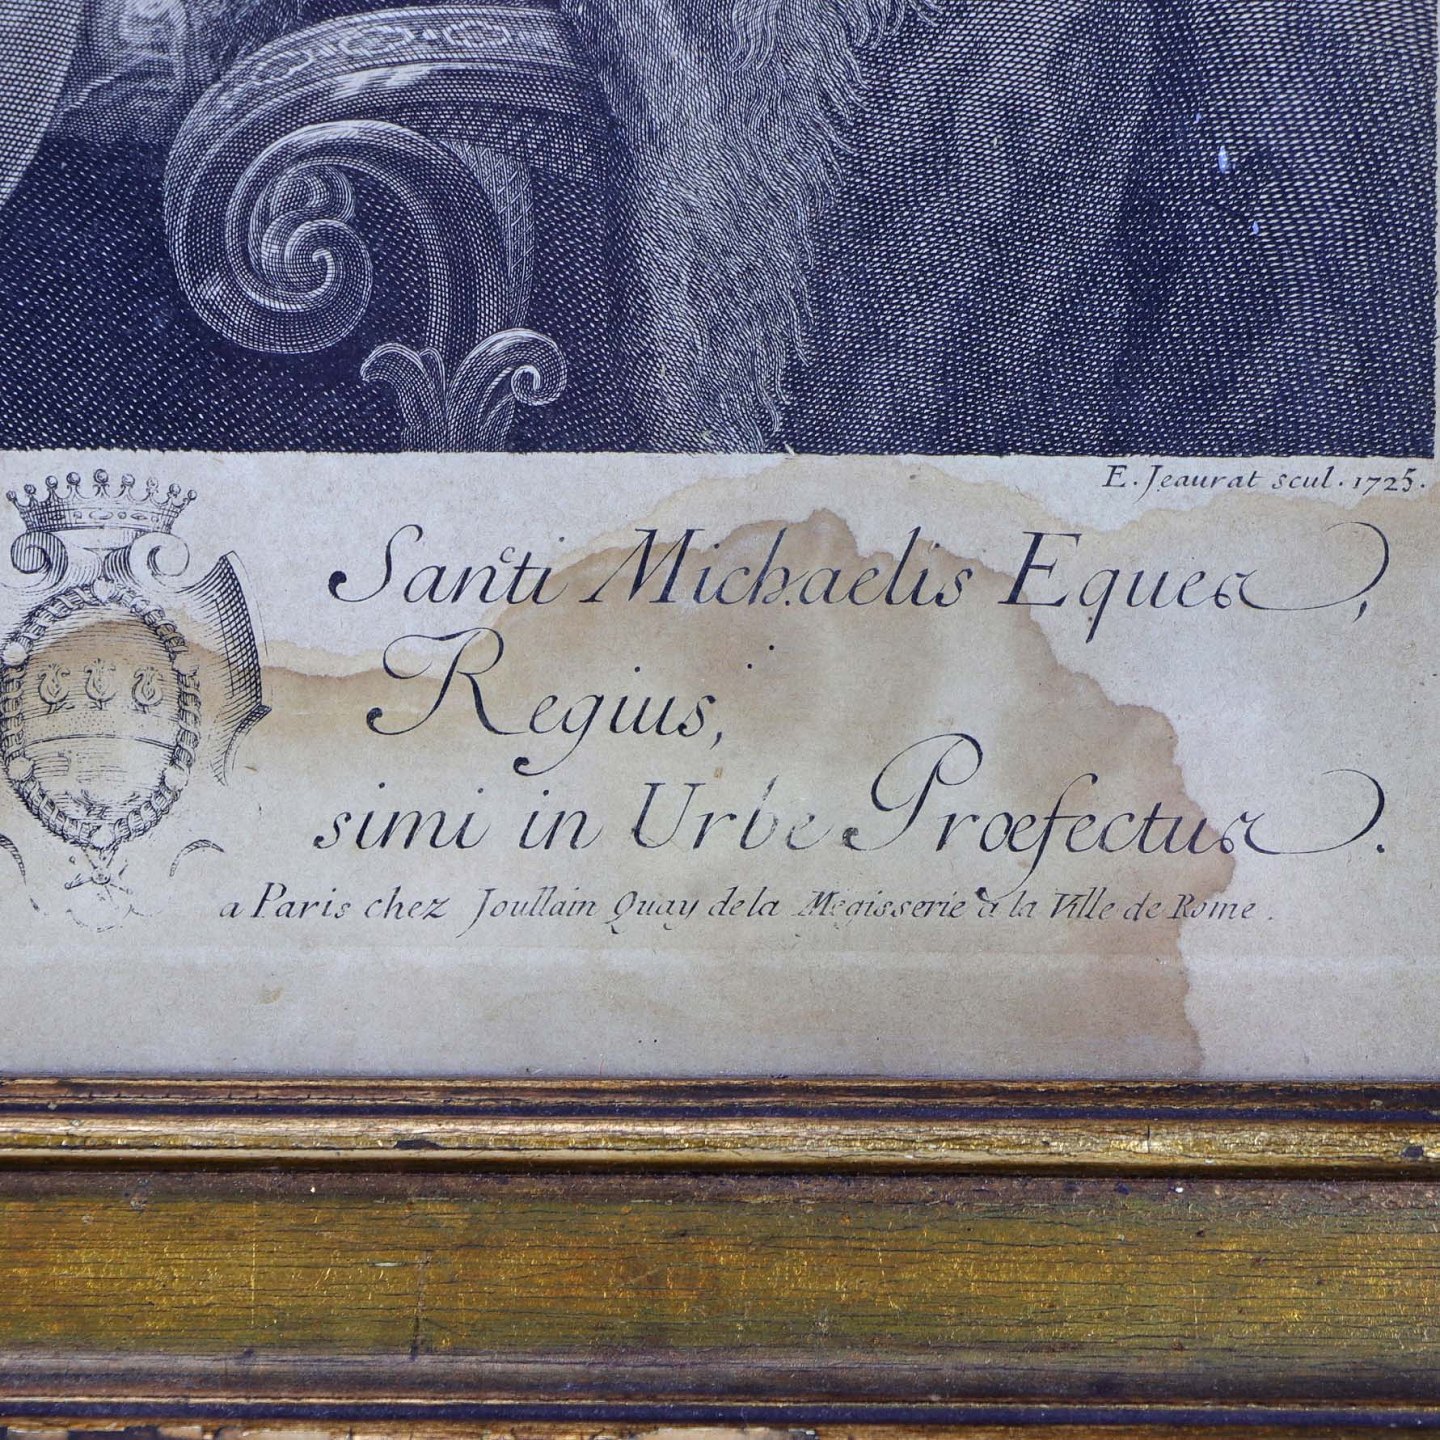 E. Jeaurat scul. 1725.
Sancti Michaelis Eques,
Regius,
simi in Urbe Præfectus.
a Paris chez Joullain Quay de la Mégisserie à la Ville de Rome.